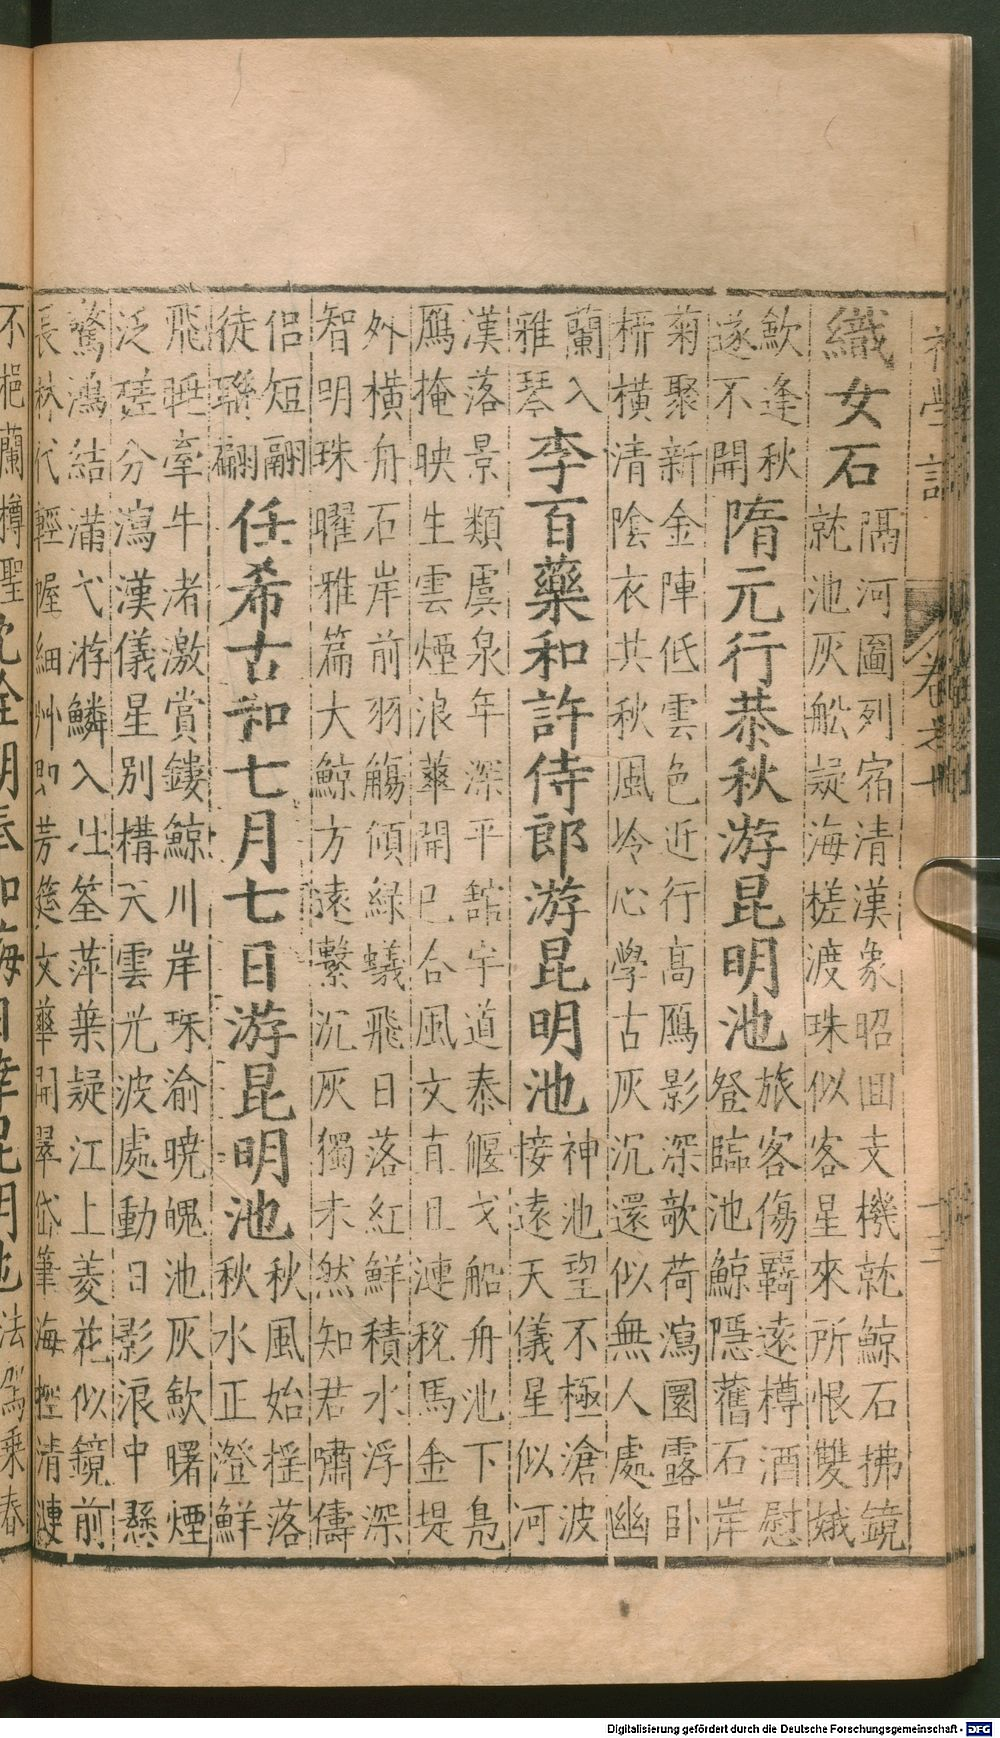 初學記 卷之七 十三
織女石
隔河圖列宿清漢象昭回支機就鯨石拂鏡
就池灰船疑海槎渡珠似客星來所恨雙蛾
歛逢秋
遂不開
隋元行恭秋游昆明池
旅客傷羈遠樽酒慰
登臨池鯨隱舊石岸
菊聚新金陣低雲色近行高鴈影深欹荷瀉圓露卧
橫清陰衣共秋風冷心學古灰沉還似無人處幽
蘭入
雅琴
李百藥和許侍郎游昆明池
神池望不極滄波
接遠天儀星似河
漢落景類虞泉年深平館宇道泰偃戈船舟池下鳧
鴈掩映生雲煙浪華開已合風文直且漣稅馬金堤
外橫舟石岸前羽觴傾綠蟻飛日落紅鮮積水浮深
智明珠曜雅篇大鯨方遠擊沉灰獨未然知君嘯儔
侶短翮
徒聯翩
任希古和七月七日游昆明池
秋風始搖落
秋水正澄鮮
飛眺牽牛渚激賞鏤鯨川岸珠渝曉魄池灰歛曙煙
泛槎分瀉漢儀星別構天雲光波處動日影浪中懸
驚鴻結蒲弋游鱗入莊筌萍葉疑江上菱花似鏡前
長林代輕幄細艸即芳筵文華開翠岱筆海控清漣
不挹蘭樽聖
沈佺期奉和晦日幸昆明池
法駕乘春
Digitalisierung gefördert durch die Deutsche Forschungsgemeinschaft - DFG